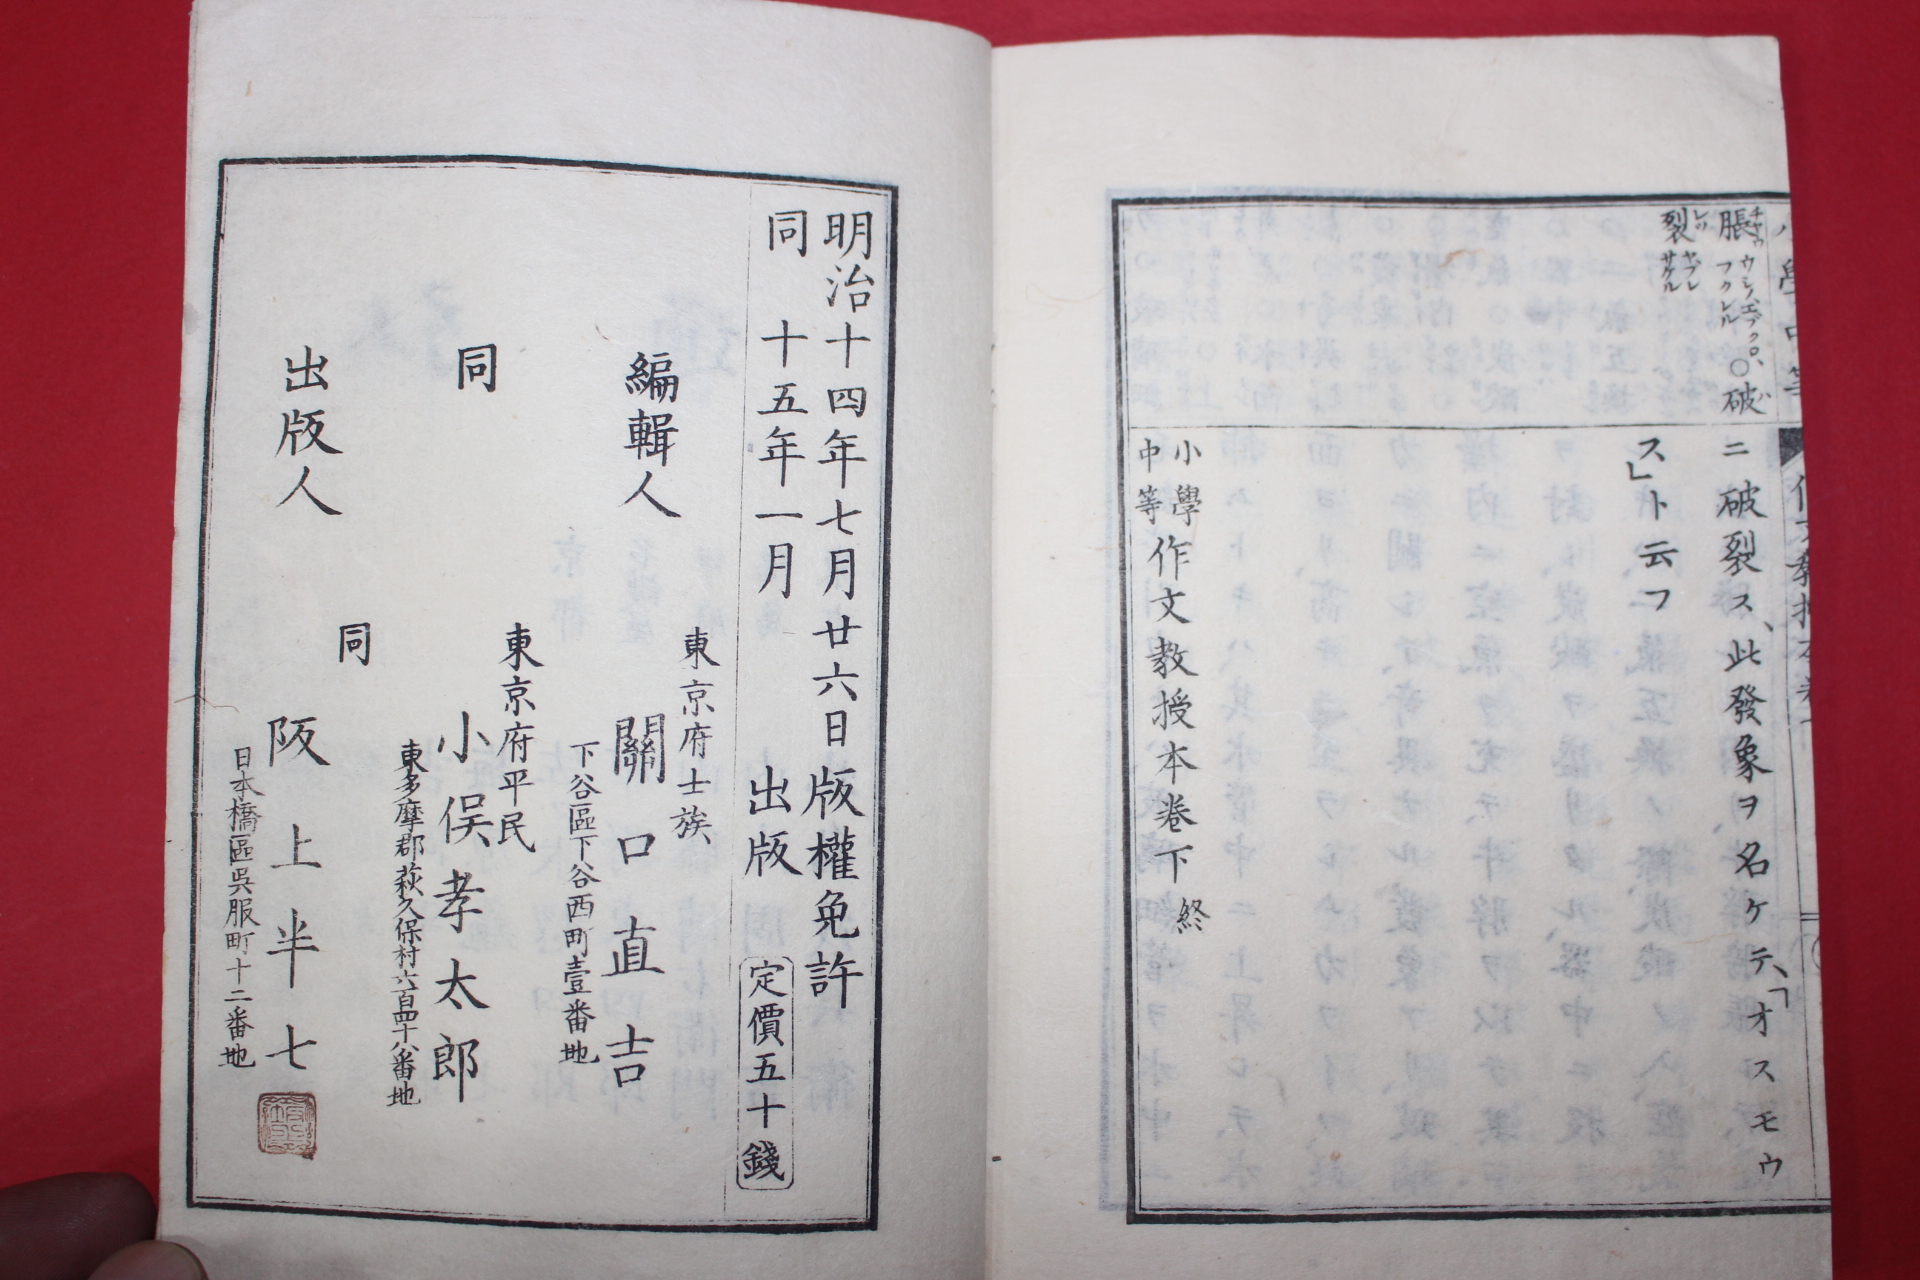 脹 チャウ ウシノエブクロ、フクレル ○破
裂 レツ ヤブレサケル
ニ破裂ス、此發象ヲ名ケテ、「オスモウ
ス」ト云フ
小學
中等
作文教授本卷下 終
明治十四年七月廿六日版權免許
同 十五年一月 出版 定價五十錢
東京府士族
編輯人 關口直吉
下谷區下谷西町壹番地
東京府平民
同 小俣孝太郎
東多摩郡萩久保村六百四十八番地
同
出版人 阪上半七
日本橋區呉服町十二番地